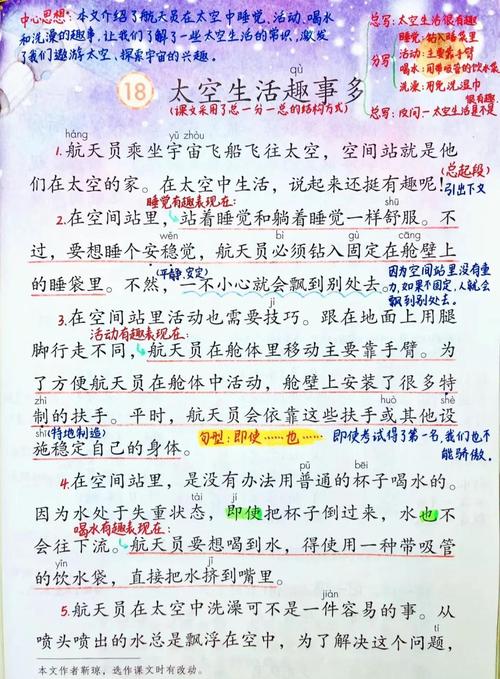 中心思想：本文介绍了航天员在太空中睡觉、活动、喝水
和洗澡的趣事，让我们了解了一些太空生活的常识，激发
了我们遨游太空，探索宇宙的兴趣。
总写：太空生活很有趣
分写：
睡觉：钻入睡袋里
活动：主要靠手臂
喝水：用带吸管的饮水袋
洗澡：用免洗湿巾
很有趣
总写：反问—太空生活是不是
qù
18 太空生活趣事多
(课文采用了总一分一总的结构方式)
háng yǔ zhòu
1.航天员乘坐宇宙飞船飞往太空，空间站就是他
们在太空的家。在太空中生活，说起来还挺有趣呢！
(总起段)
引出下文
睡觉有趣表现在：
shū
2.在空间站里，站着睡觉和躺着睡觉一样舒服。不
wěn gù cāng
过，要想睡个安稳觉，航天员必须钻入固定在舱壁上
(平静，安定)
的睡袋里。不然，一不小心就会飘到别处去。
因为空间站里没有重
力，如果不固定，人就会
飘到别处去。
jì
3.在空间站里活动也需要技巧。跟在地面上用腿
活动有趣表现在：
脚行走不同，航天员在舱体里移动主要靠手臂。为
了方便航天员在舱体中活动，舱壁上安装了很多特
huò shè
制的扶手。平时，航天员会依靠这些扶手或其他设
shī (特地制造)
施稳定自己的身体。
句型：即使……也…… 即使考试得了第一名，我们也不
能骄傲。
pǔ bēi
4.在空间站里，是没有办法用普通的杯子喝水的。
tài jí
因为水处于失重状态，即使把杯子倒过来，水也不
喝水有趣表现在：
会往下流。航天员要想喝到水，得使用一种带吸管
yǐn
的饮水袋，直接把水挤到嘴里。
jiàn
5.航天员在太空中洗澡可不是一件容易的事。从
tí
喷头喷出的水总是飘浮在空中，为了解决这个问题，
本文作者靳琼，选作课文时有改动。